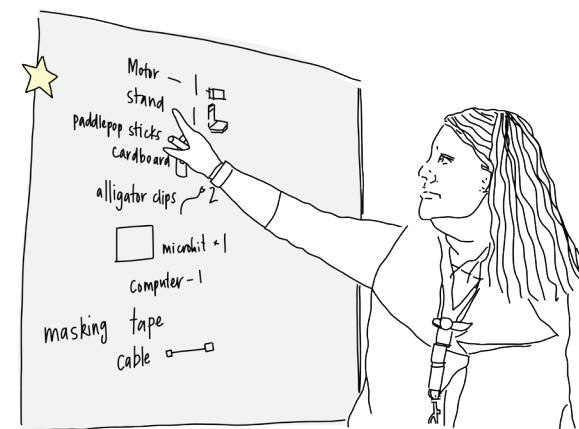 Motor - 1
stand 1
paddlepop sticks
cardboard
alligator clips 2
microbit x 1
computer - 1
masking tape
cable